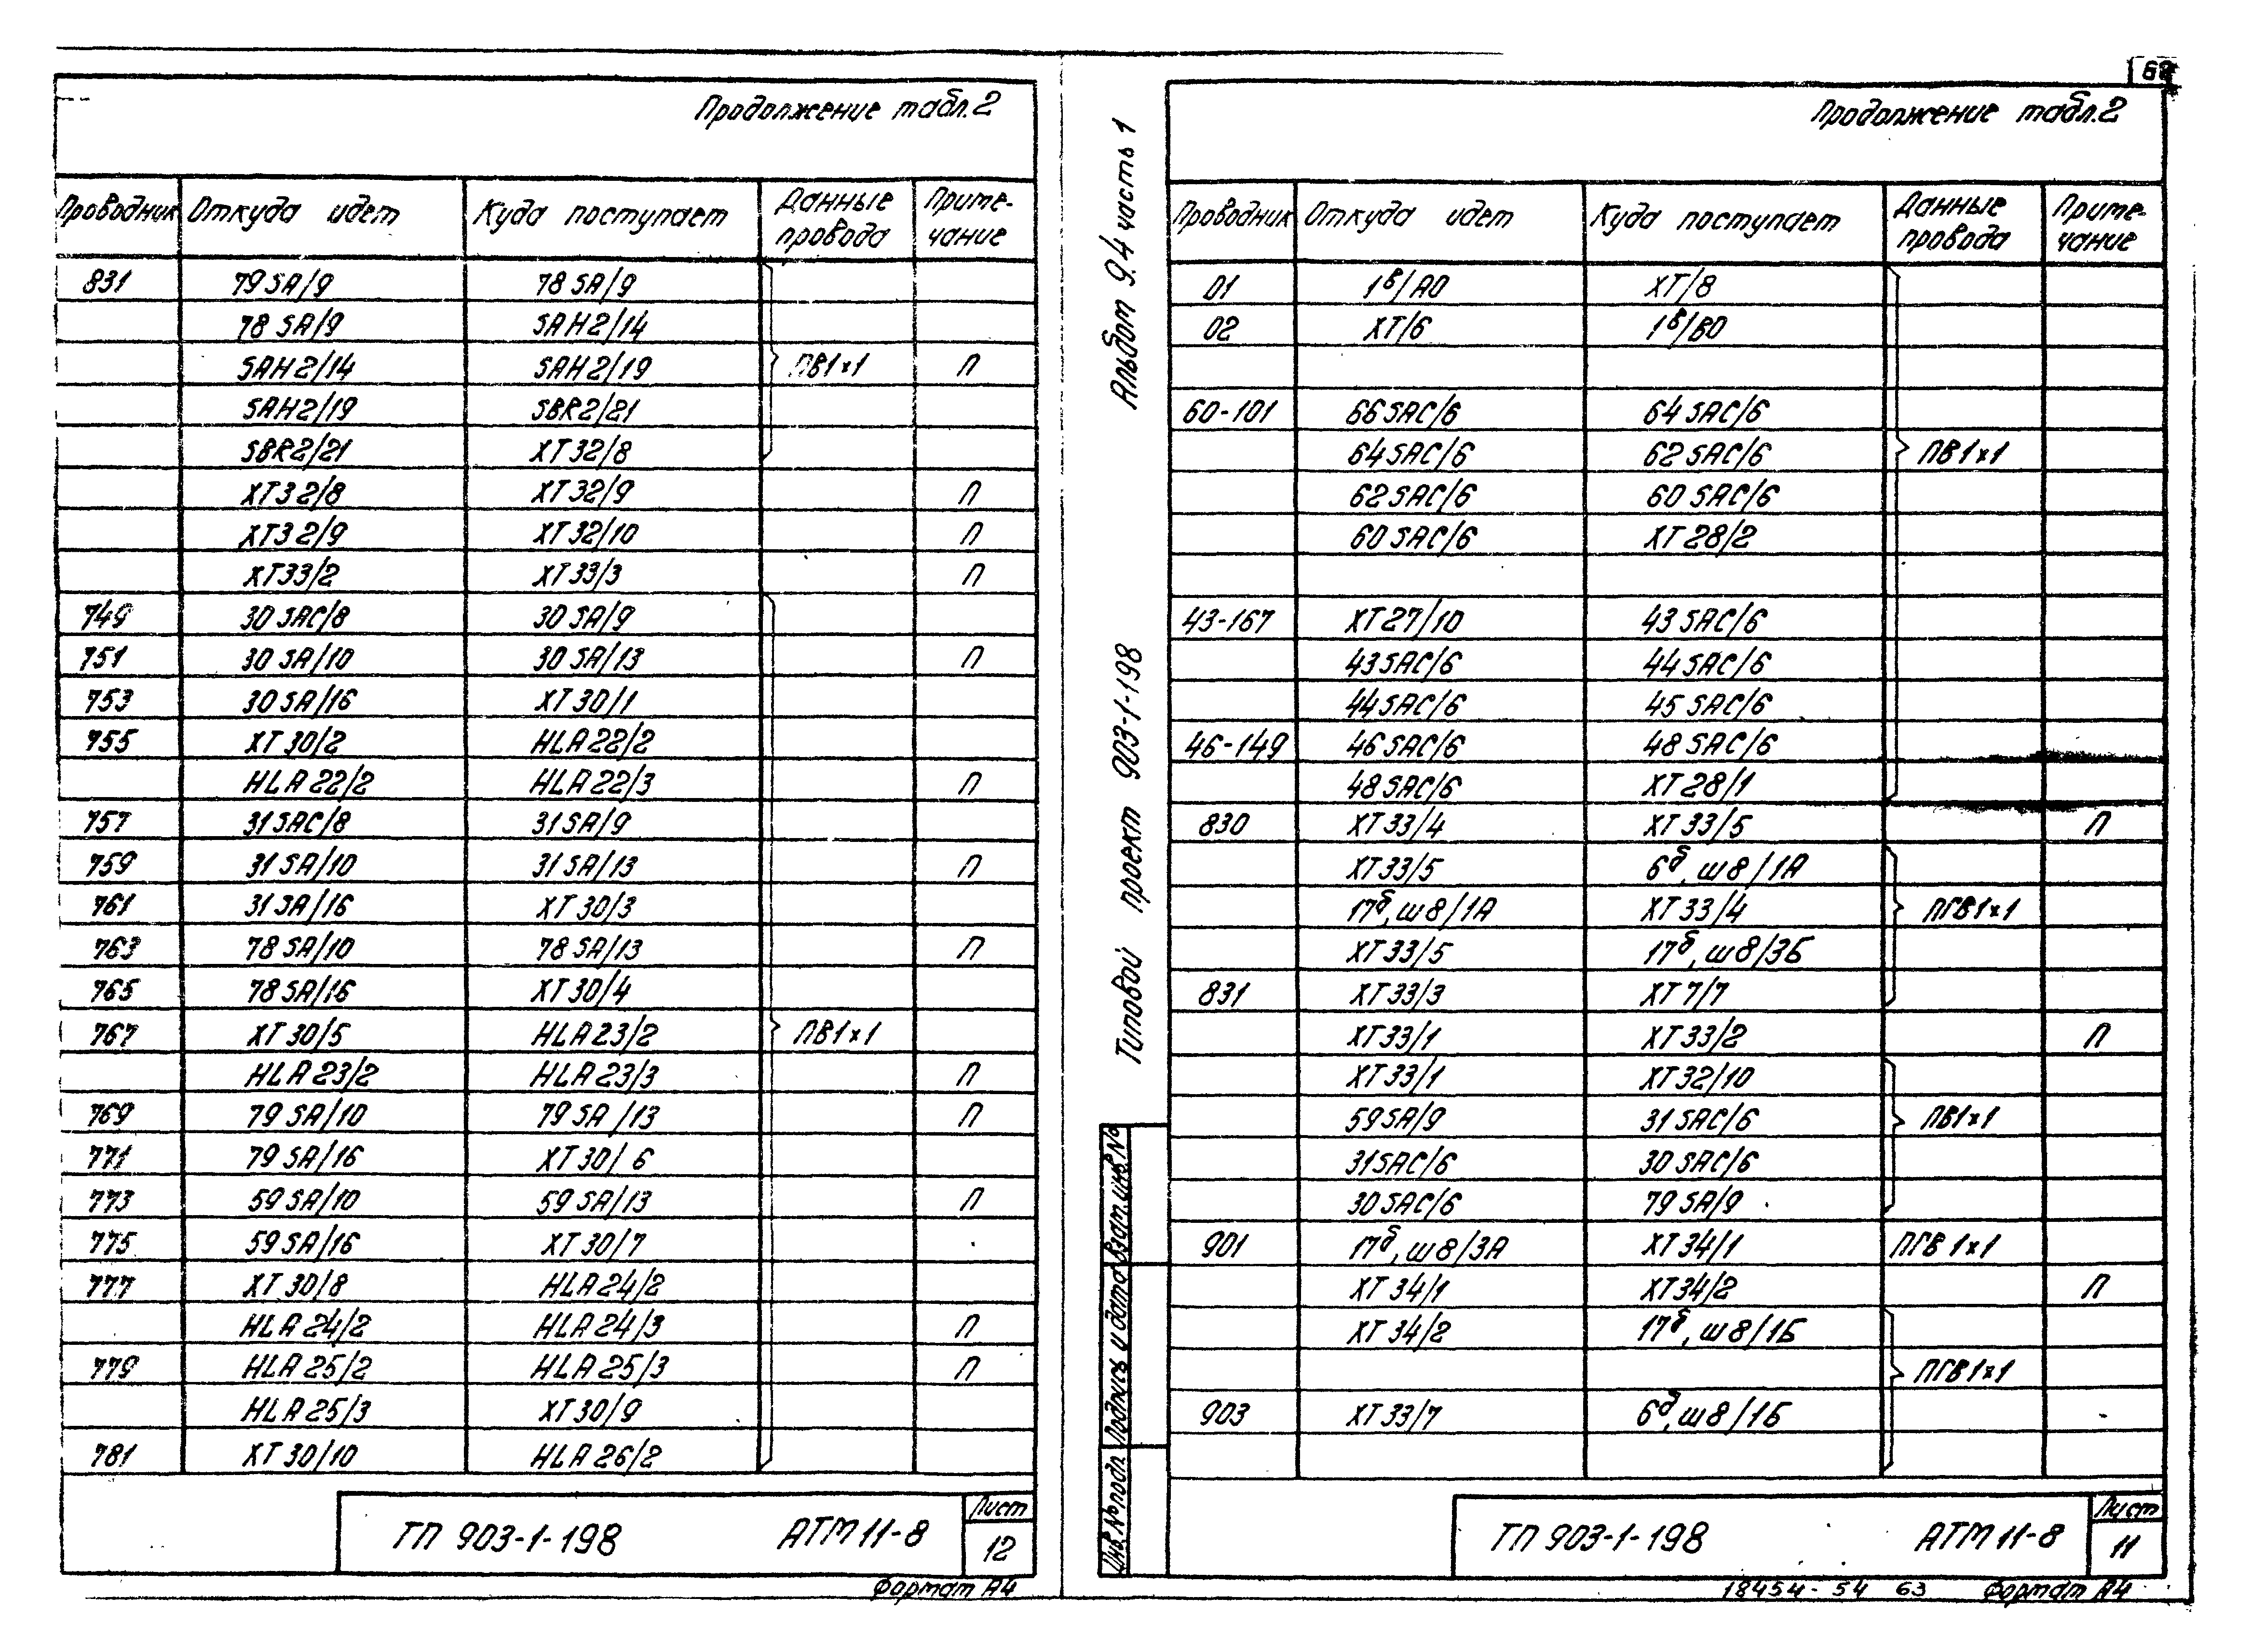 Продолжение табл.2
Проводник Откуда идет Куда поступает Данные провода Примечание
831 79SA/9 78SA/9
78SA/9 SAH2/14
SAH2/14 SAH2/19 ПВ1×1 П
SAH2/19 SBR2/21
SBR2/21 XT32/8
XT32/8 XT32/9 П
XT32/9 XT32/10 П
XT33/2 XT33/3 П
749 30SAC/8 30SA/9
751 30SA/10 30SA/13 П
753 30SA/16 XT30/1
755 XT30/2 HLA22/2
HLA22/2 HLA22/3 П
757 31SAC/8 31SA/9
759 31SA/10 31SA/13 П
761 31SA/16 XT30/3
763 78SA/10 78SA/13 П
765 78SA/16 XT30/4
767 XT30/5 HLA23/2 ПВ1×1
HLA23/2 HLA23/3 П
769 79SA/10 79SA/13 П
771 79SA/16 XT30/6
773 59SA/10 59SA/13 П
775 59SA/16 XT30/7
777 XT30/8 HLA24/2
HLA24/2 HLA24/3 П
779 HLA25/2 HLA25/3 П
HLA25/3 XT30/9
781 XT30/10 HLA26/2
ТП 903-1-198 АТМ11-8 Лист 12
Формат А4
Альбом 9.4 часть 1
Типовой проект 903-1-198
Взам. инв. №
Подпись и дата
Инв. № подл.
Продолжение табл.2
Проводник Откуда идет Куда поступает Данные провода Примечание
01 1в/А0 XT/8
02 XT/6 1в/В0
60-101 66SAC/6 64SAC/6
64SAC/6 62SAC/6 ПВ1×1
62SAC/6 60SAC/6
60SAC/6 XT28/2
43-167 XT27/10 43SAC/6
43SAC/6 44SAC/6
44SAC/6 45SAC/6
46-149 46SAC/6 48SAC/6
48SAC/6 XT28/1
830 XT33/4 XT33/5 П
XT33/5 6б, ш8/1А
17б, ш8/1А XT33/4 ПГВ1×1
XT33/5 17б, ш8/3Б
831 XT33/3 XT7/7
XT33/1 XT33/2 П
XT33/1 XT32/10
59SA/9 31SAC/6 ПВ1×1
31SAC/6 30SAC/6
30SAC/6 79SA/9
901 17б, ш8/3А XT34/1 ПГВ1×1
XT34/1 XT34/2 П
XT34/2 17б, ш8/1Б
ПГВ1×1
903 XT33/7 6б, ш8/1Б
ТП 903-1-198 АТМ11-8 Лист 11
18454-54 63 Формат А4